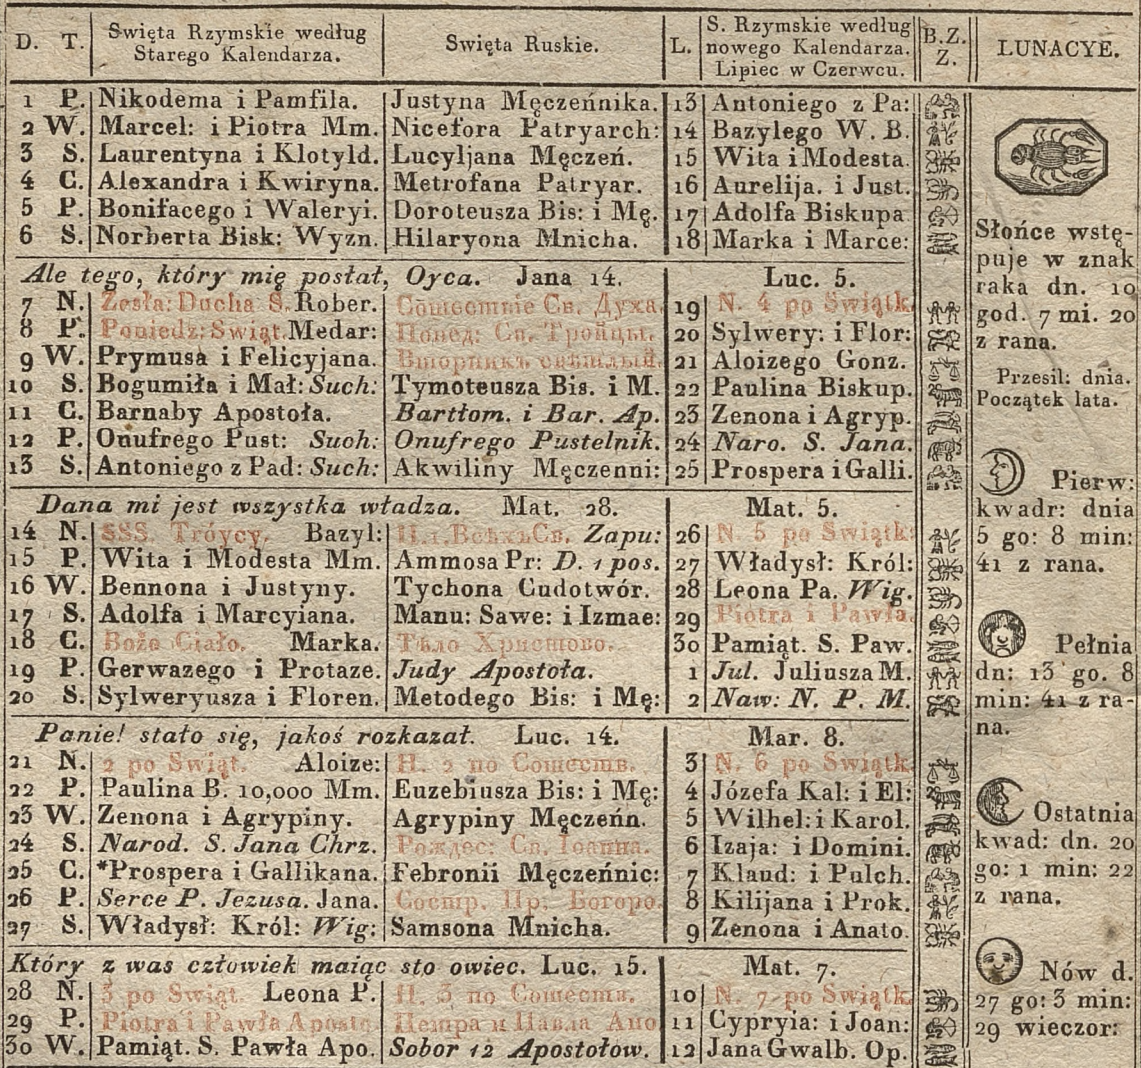 D. T. Swięta Rzymskie według Starego Kalendarza. Swięta Ruskie. L. S. Rzymskie według nowego Kalendarza. Lipiec w Czerwcu. B.Z. Z. LUNACYE.
1 P. Nikodema i Pamfila. Justyna Męczeńnika. 13 Antoniego z Pa:
2 W. Marcel: i Piotra Mm. Nicefora Patryarch: 14 Bazylego W. B.
3 S. Laurentyna i Klotyld. Lucyljana Męczeń. 15 Wita i Modesta.
4 C. Alexandra i Kwiryna. Metrofana Patryar. 16 Aurelija. i Just.
5 P. Bonifacego i Waleryi. Doroteusza Bis: i Mę. 17 Adolfa Biskupa
6 S. Norberta Bisk: Wyzn. Hilaryona Mnicha. 18 Marka i Marce:
Ale tego, który mię posłał, Oyca. Jana 14. Luc. 5.
7 N. Zesła: Ducha S. Rober. Сошествіе Св. Духа. 19 N. 4 po Swiątk.
8 P. Poniedz: Swiąt. Medar: Понед: Св. Тройцы. 20 Sylwery: i Flor:
9 W. Prymusa i Felicyjana. Вторникъ свѣтлый. 21 Aloizego Gonz.
10 S. Bogumiła i Mał: Such: Tymoteusza Bis. i M. 22 Paulina Biskup.
11 C. Barnaby Apostoła. Bartłom. i Bar. Ap. 23 Zenona i Agryp.
12 P. Onufrego Pust: Such: Onufrego Pustelnik. 24 Naro. S. Jana.
13 S. Antoniego z Pad: Such: Akwiliny Męczenni: 25 Prospera i Galli.
Dana mi jest wszystka władza. Mat. 28. Mat. 5.
14 N. SSS. Tróycy. Bazyl: Н. 1. Всѣхъ Св. Zapu: 26 N. 5 po Swiątk:
15 P. Wita i Modesta Mm. Ammosa Pr: D. 1 pos. 27 Władysł: Król:
16 W. Bennona i Justyny. Tychona Cudotwór. 28 Leona Pa. Wig.
17 S. Adolfa i Marcyiana. Manu: Sawe: i Izmae: 29 Piotra i Pawła.
18 C. Boże Ciało. Marka. Тѣло Христово. 30 Pamiąt. S. Paw.
19 P. Gerwazego i Protaze. Judy Apostoła. 1 Jul. Juliusza M.
20 S. Sylweryusza i Floren. Metodego Bis: i Mę: 2 Naw: N. P. M.
Panie! stało się, jakoś rozkazał. Luc. 14. Mar. 8.
21 N. 2 po Swiąt. Aloize: Н. 2 по Сошеств. 3 N. 6 po Swiątk.
22 P. Paulina B. 10,000 Mm. Euzebiusza Bis: i Mę: 4 Józefa Kal: i El:
23 W. Zenona i Agrypiny. Agrypiny Męczeńn. 5 Wilhel: i Karol.
24 S. Narod. S. Jana Chrz. Рождес: Св. Іоанна. 6 Izaja: i Domini.
25 C. *Prospera i Gallikana. Febronii Męczeńnic: 7 Klaud: i Pulch.
26 P. Serce P. Jezusa. Jana. Состр. Пр: Богоро. 8 Kilijana i Prok.
27 S. Władysł: Król: Wig: Samsona Mnicha. 9 Zenona i Anato.
Który z was człowiek maiąc sto owiec. Luc. 15. Mat. 7.
28 N. 3 po Swiąt. Leona P. Н. 3 по Сошеств. 10 N. 7 po Swiątk.
29 P. Piotra i Pawła Aposto. Петра и Павла Апо 11 Cypryia: i Joan:
30 W. Pamiąt. S. Pawła Apo. Sobor 12 Apostołow. 12 Jana Gwalb. Op.
Słońce wstę-
puje w znak
raka dn. 10
god. 7 mi. 20
z rana.
Przesil: dnia.
Początek lata.
Pierw:
kwadr: dnia
5 go: 8 min:
41 z rana.
Pełnia
dn: 13 go. 8
min: 41 z ra-
na.
Ostatnia
kwad: dn. 20
go: 1 min: 22
z rana.
Nów d.
27 go: 3 min:
29 wieczor: